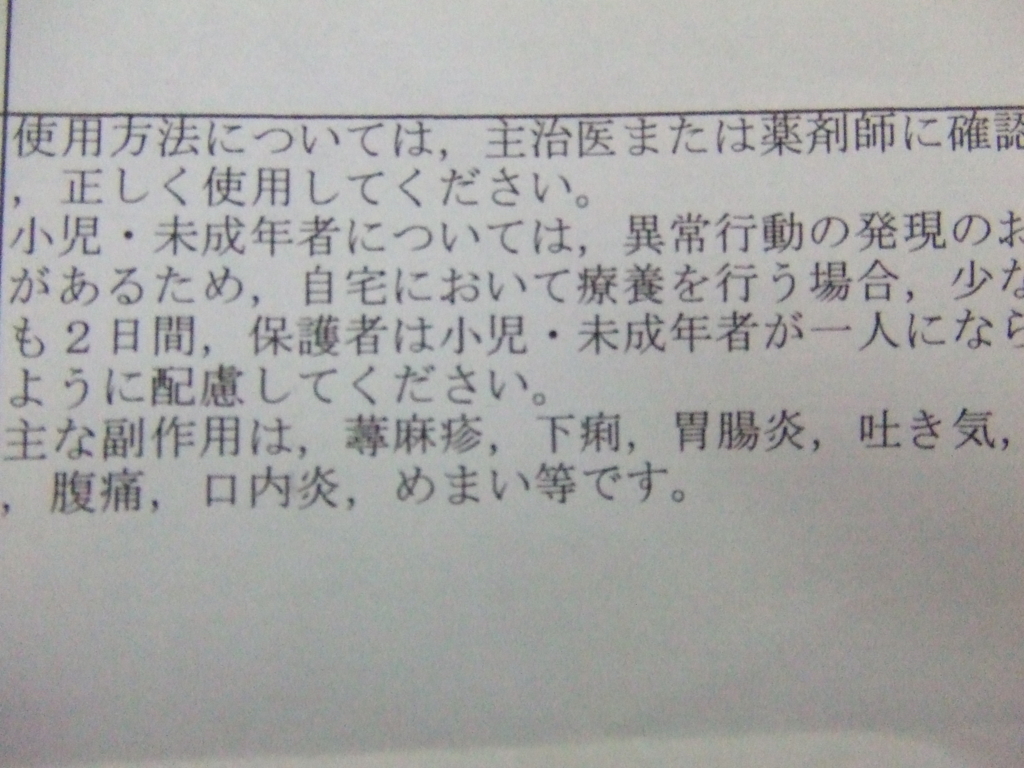 使用方法については，主治医または薬剤師に確認
，正しく使用してください。
小児・未成年者については，異常行動の発現のお
があるため，自宅において療養を行う場合，少な
も２日間，保護者は小児・未成年者が一人になら
ように配慮してください。
主な副作用は，蕁麻疹，下痢，胃腸炎，吐き気，
，腹痛，口内炎，めまい等です。